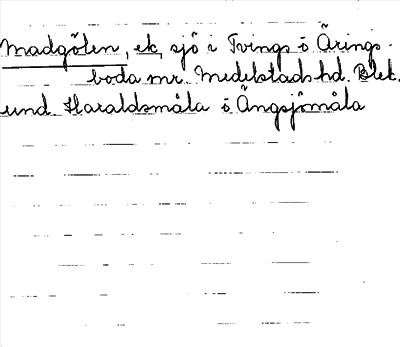 Madgölen, ek, sjö i Tvings o Ärings-
boda mr. Medelstads hd. Blek.
und. Haraldsmåla o Ängsjömåla